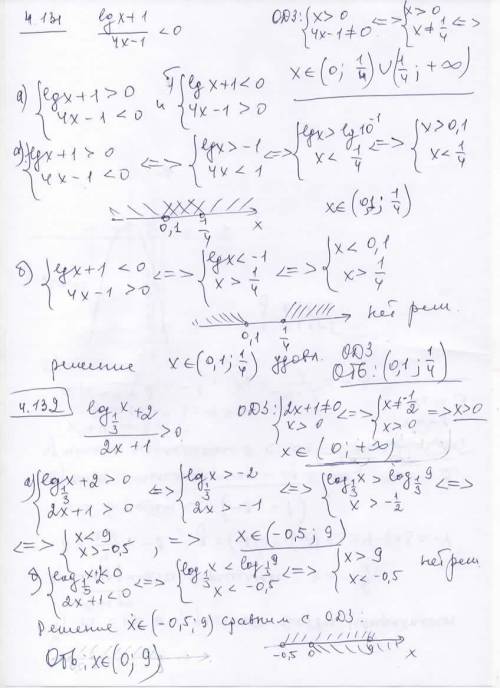 4.131 (lg x+1)/(4x-1) < 0 ОДЗ: { x>0 4x-1≠0 <=> { x>0 x≠1/4 <=>
x∈(0; 1/4)∪(1/4; +∞)
а) { lg x+1>0 4x-1<0 и б) { lg x+1<0 4x-1>0
а) { lg x+1>0 4x-1<0 <=> { lg x>-1 4x<1 <=> { lg x>lg 10^-1 x<1/4 <=> { x>0,1 x<1/4
0,1 1/4 x x∈(0,1; 1/4)
б) { lg x+1<0 4x-1>0 <=> { lg x<-1 x>1/4 <=> { x<0,1 x>1/4
0,1 1/4 нет реш.
решение x∈(0,1; 1/4) удовл. ОДЗ
Отв: (0,1; 1/4)
4.132 (log_1/3 x+2)/(2x+1) > 0 ОДЗ: { 2x+1≠0 x>0 <=> { x≠-1/2 x>0 => x>0
x∈(0; +∞)
а) { log_1/3 x+2>0 2x+1>0 <=> { log_1/3 x>-2 2x>-1 <=> { log_1/3 x>log_1/3 9 x>-1/2 <=>
<=> { x<9 x>-0,5 , => x∈(-0,5; 9)
б) { log_1/3 x+2<0 2x+1<0 <=> { log_1/3 x<log_1/3 9 x<-0,5 <=> { x>9 x<-0,5 нет реш
Решение x∈(-0,5; 9) сравним с ОДЗ:
Отв: x∈(0; 9) -0,5 0 9 x